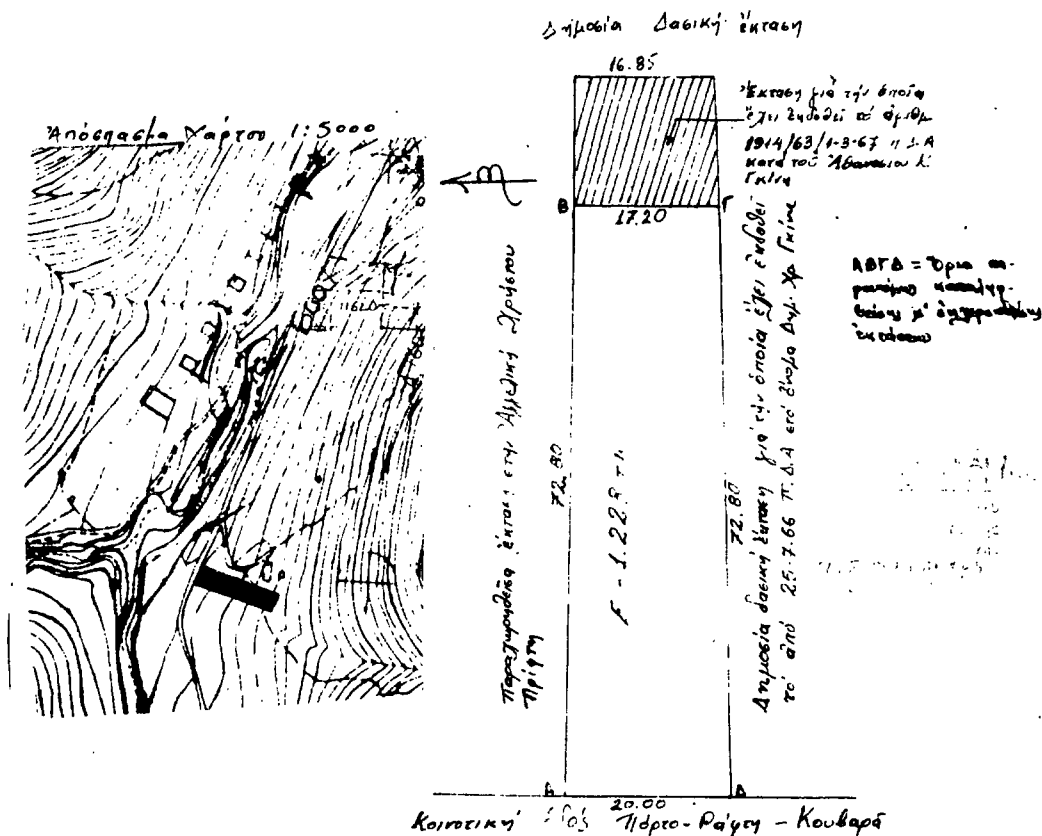 Δημοσία Δασική ἔκταση
16.85
Ἀπόσπασμα Χάρτου 1:5000
Ἔκταση γιά τήν ὁποία
ἔχει ἐκδοθεῖ τό ἀριθμ
1914/63/1-3-67 Π.Δ.Α
κατά τοῦ Ἀθανασίου
Γκίνη
Β
Γ
17.20
ΑΒΓΔ = Ὅρια
ἐκτάσεως
Παραχωρηθεῖσα ἔκταση στήν Ἀγγελική Χρήστου
Πρίφτη
72.80
F = 1.228 τ.μ.
72.80
Δημοσία δασική ἔκταση γιά τήν ὁποία ἔχει ἐκδοθεῖ
τό ἀπό 25-7-66 Π.Δ.Α στό ὄνομα Δημ. Χρ. Γκίνη
Α
Δ
20.00
Κοινοτική Ὁδός Πόρτο-Ράφτη - Κουβαρά